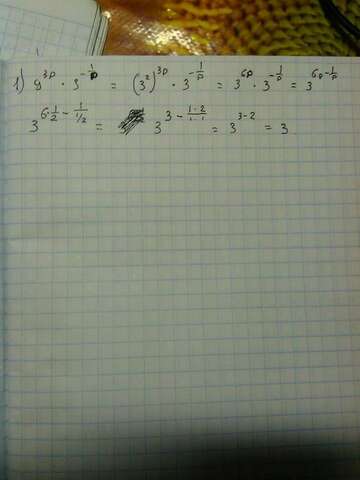 1) 9^{3p} · 3^{-\frac{1}{p}} = (3^2)^{3p} · 3^{-\frac{1}{p}} = 3^{6p} · 3^{-\frac{1}{p}} = 3^{6p-\frac{1}{p}}
3^{6·\frac{1}{2}-\frac{1}{1/2}} = 3^{3-\frac{1·2}{1·1}} = 3^{3-2} = 3